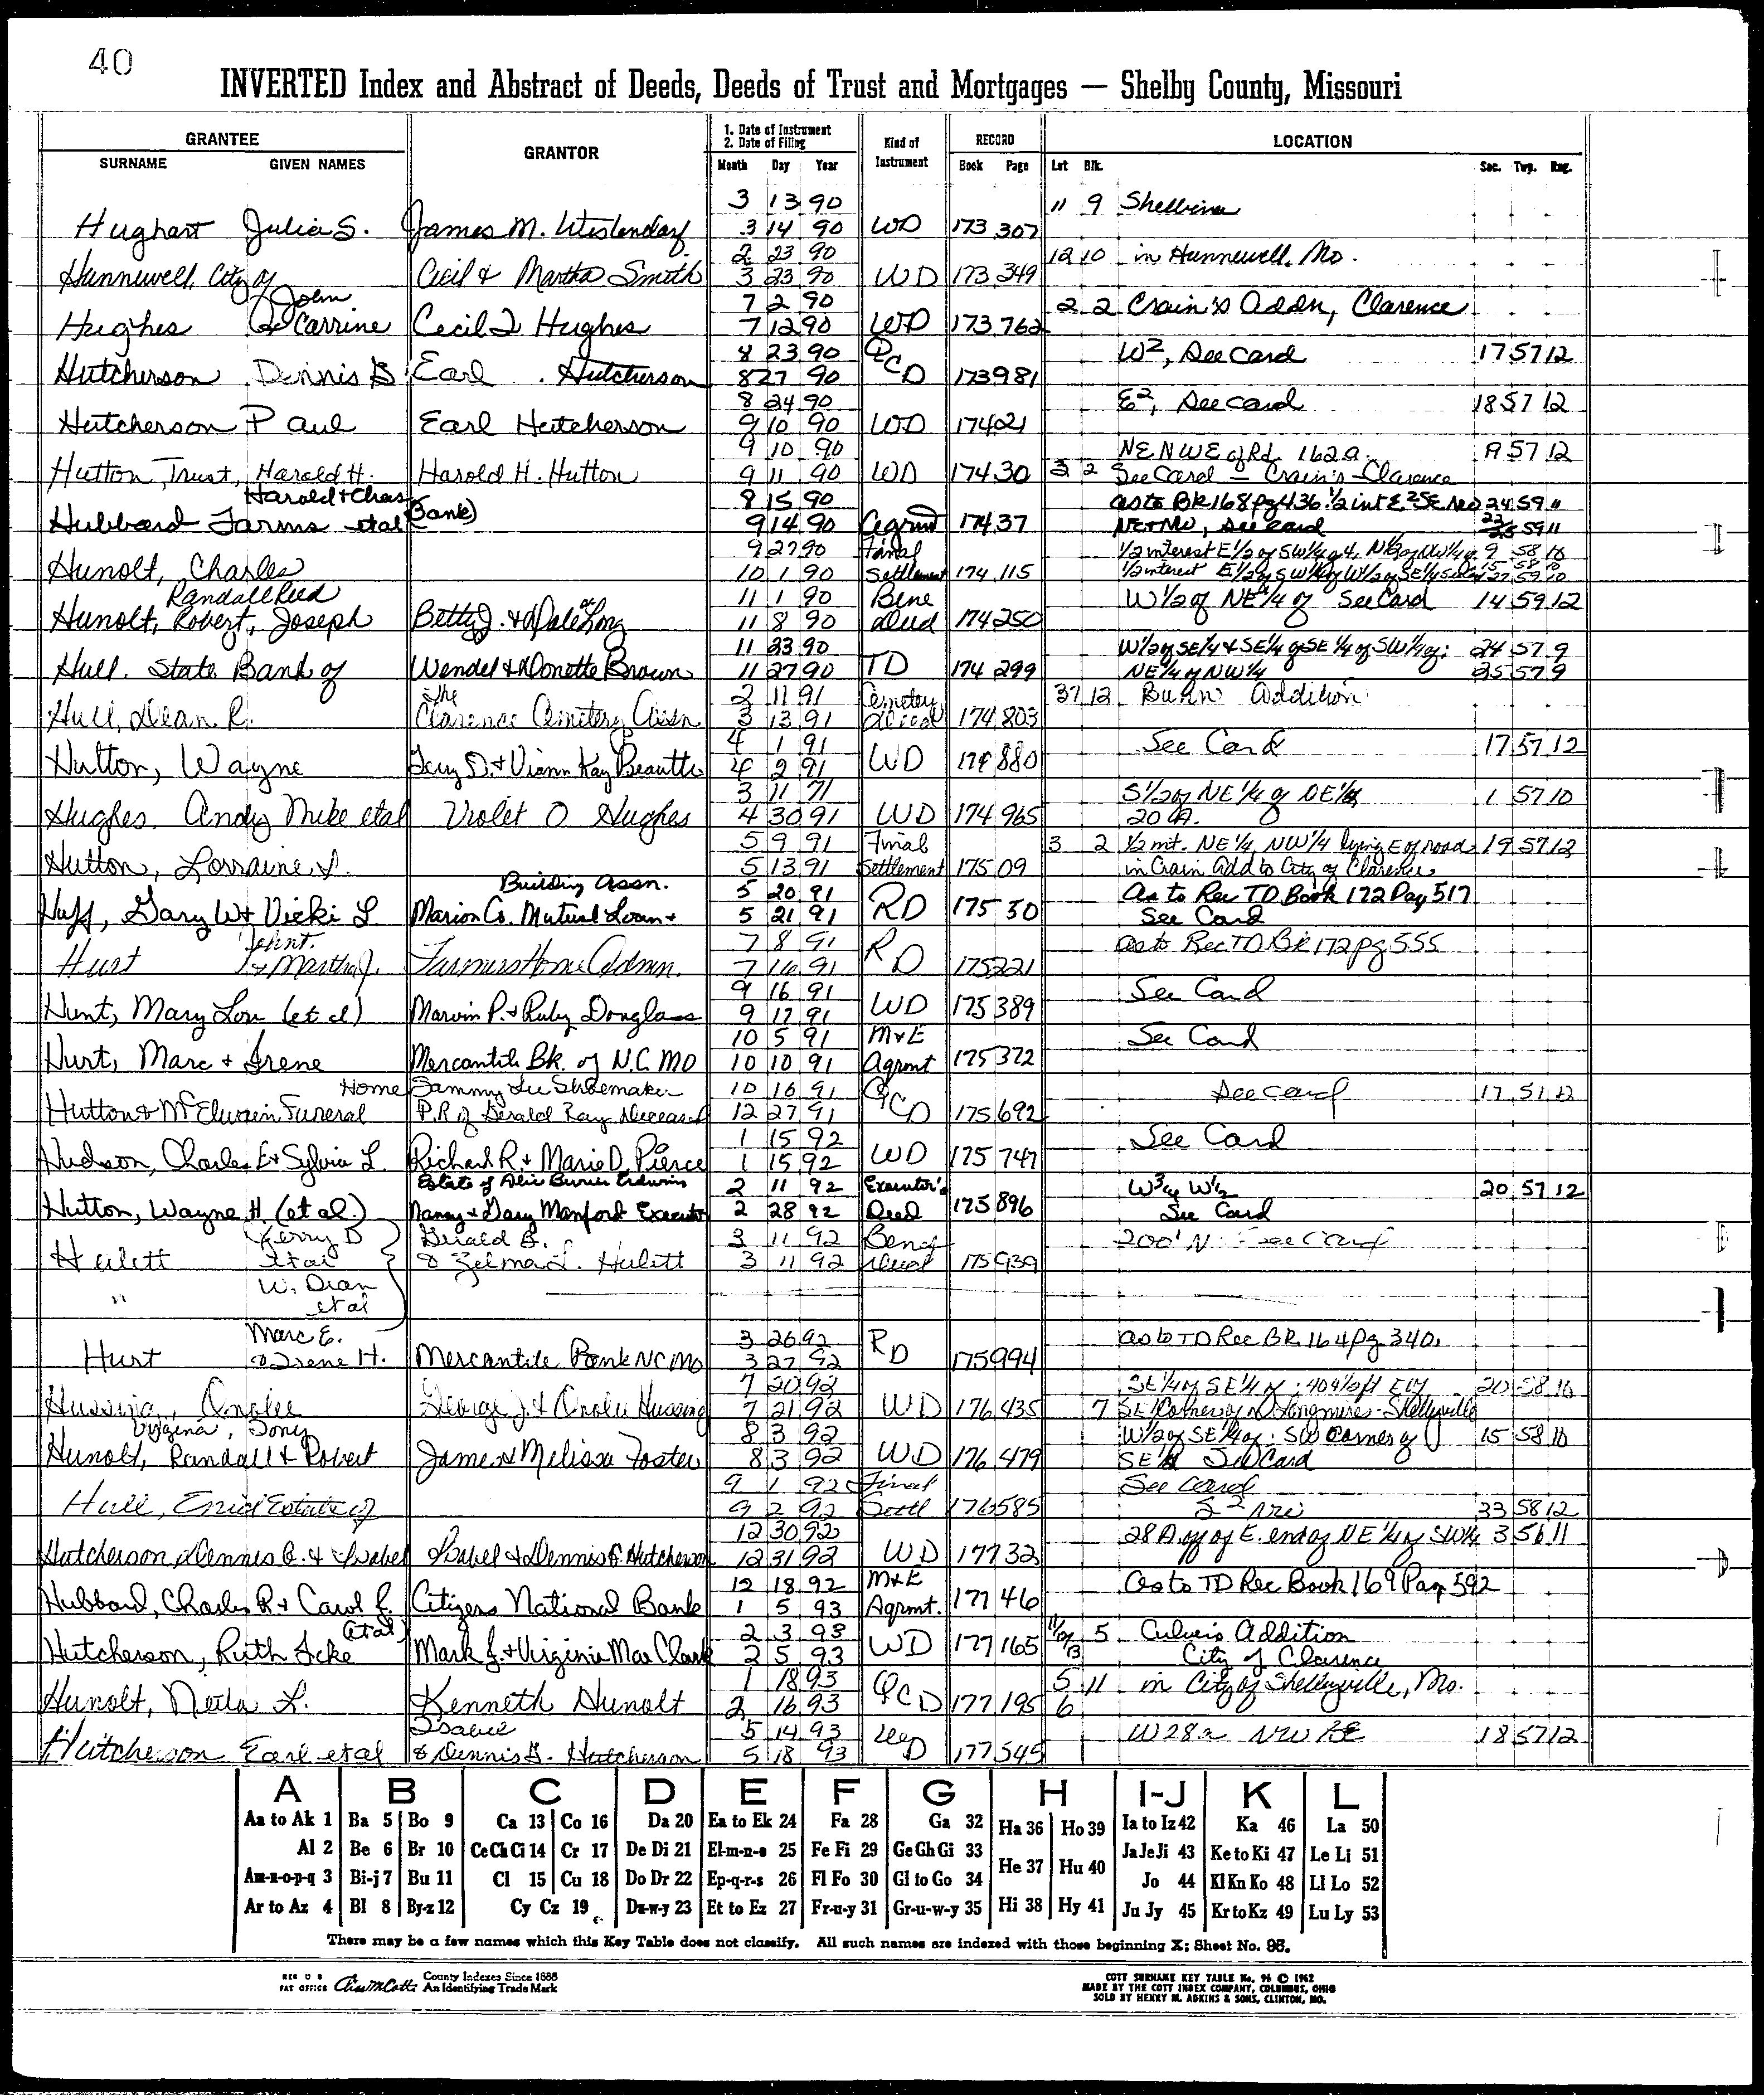 40
INVERTED Index and Abstract of Deeds, Deeds of Trust and Mortgages — Shelby County, Missouri
GRANTEE
SURNAME GIVEN NAMES
GRANTOR
1. Date of Instrument
2. Date of Filing
Month Day Year
Kind of Instrument
RECORD
Book Page
LOCATION
Lot Blk. Sec. Twp. Rng.
3 13 90 11 9 Shelbina
Hughart Julia S. James M. 3 14 90 WD 173 307
2 23 90 12 10 in Hunnewell, Mo.
Hunnewell, City of Cecil & Martha Smith 3 23 90 WD 173 349
John 7 2 90 2 2 Crain's Addn, Clarence
Hughes & Carrine Cecil I Hughes 7 12 90 WD 173 762
8 23 90 W2, See Card 17 57 12
Hutcherson Dennis G Earl Hutcherson 8 27 90 QCD 173 981
8 24 90 E2, See Card 18 57 12
Hutcherson Paul Earl Hutcherson 9 10 90 WD 174 21
9 10 90 NE NW E of Rd. 162a. 19 57 12
Hutton, Trust, Harold H. Harold H. Hutton 9 11 90 WD 174 30 3 2 See Card - Crain's - Clarence
Harold & Chas 8 15 90 as to BK 168 pg 436 1/2 int E2SE 24 59 11
Hubbard Farms etal (Bank) 9 14 90 Agrmt 174 37 See Card 59 11
9 27 90 Final 1/2 interest E1/2 of SW1/4 58 10
Hunolt, Charles 10 1 90 Settlement 174 115 1/2 interest E1/2 of SW1/4 W1/2 of SE1/4 27 59 10
Randall Reed 11 1 90 Bene W1/2 of NE1/4 of See Card 14 59 12
Hunolt, Robert, Joseph Betty J. & Dale Long 11 8 90 Deed 174 250
11 23 90 W1/2 of SE1/4 & SE1/4 of SE1/4 of SW1/4 of: 24 57 9
Hull. State Bank of Wendel & Donette Brown 11 27 90 TD 174 299 NE1/4 of NW1/4 25 57 9
The 2 11 91 Cemetery 37 12 Addition
Hull, Dean R. Clarence Cemetery Assn 3 13 91 Deed 174 803
4 1 91 See Card 17 57 12
Hutton, Wayne & Viann Kay 4 2 91 WD 174 880
3 11 71 S1/2 of NE1/4 of NE1/4 1 57 10
Hughes, Andy Mike etal Violet O Hughes 4 30 91 WD 174 965 20 A.
5 9 91 Final 3 2 1/2 int. NE1/4 NW1/4 lying E of road 19 57 12
Hutton, Lorraine 5 13 91 Settlement 175 09 in Crain Add to City of Clarence
Building Assn. 5 20 91 As to Rec TD Book 172 Pag 517
Huff, Gary W & Vicki L Marion Co. Mutual Loan & 5 21 91 RD 175 50 See Card
John T. 7 8 91 as to Rec TD Bk 172 pg 555
Hurt & Martha J. Farmers Home Admn. 7 16 91 RD 175 221
9 16 91 See Card
Hunt, Mary Lou (et al) Marvin P. & Ruby Douglass 9 17 91 WD 175 389
10 5 91 M&E See Card
Hurt, Marc & Irene Mercantile Bk. of N.C. MO 10 10 91 Agrmt 175 372
Home Sammy Lee Shoemaker 10 16 91 See Card 17 57 12
Hutton & McElwain Funeral P.R of Gerald Ray Deceased 12 27 91 QCD 175 692
1 15 92 See Card
Hudson, Charles E & Sylvia L. Richard R. & Marie D. Pierce 1 15 92 WD 175 747
Estate of 2 11 92 Executor's 20 57 12
Hutton, Wayne H. (et al.) Nancy & Gary Manford Executor 2 28 92 Deed 175 896 See Card
Jerry D Gerald B. 3 11 92 Benef 200' N See Card
Hulett Etal & Zelma L. Hulett 3 11 92 Deed 175 939
" W. Dian
et al
Marc E. 3 26 92 as to TD Rec BK 164 pg 340.
Hurt & Irene H. Mercantile Bank NC Mo 3 27 92 RD 175 994
7 20 92 SE1/4 of SE1/4 of: 20 58 10
George J. & 7 21 92 WD 176 435 7 SE Corner of Shelbyville
Virginia, Tony 8 3 92 W1/2 of SE1/4 of: SW Corner of 15 58 10
Hunolt, Randall & Robert James & Melissa Foster 8 3 92 WD 176 479 SE1/4 See Card
9 1 92 Final See Card
Hull, Enid Estate of 9 2 92 Settl 176 585 33 58 12
12 30 92 28 A. off of E. end of NE1/4 of SW1/4 3 56 11
Hutcherson Dennis G. & Isabel Isabel & Dennis G. Hutcherson 12 31 92 WD 177 32
12 18 92 M&E As to TD Rec Book 169 Pag 592
Hubbard, Charles R & Carol L. Citizens National Bank 1 5 93 Agrmt. 177 46
(et al) 2 3 93 5 Culver's Addition
Hutcherson, Ruth Icke Mark J. & Virginia Mae Clark 2 5 93 WD 177 165 City of Clarence
1 18 93 5 11 in City of Shelbyville, Mo.
Hunolt, Neila L. Kenneth Hunolt 2 16 93 QCD 177 195 6
Isabel 5 14 93 W 28a NW 18 57 12
Hutcherson Earl et al & Dennis G. Hutcherson 5 18 93 WD 177 545
A B C D E F G H I-J K L
Aa to Ak 1 Ba 5 Bo 9 Ca 13 Co 16 Da 20 Ea to Ek 24 Fa 28 Ga 32 Ha 36 Ho 39 Ia to Iz 42 Ka 46 La 50
Al 2 Be 6 Br 10 Ce Ch Ci 14 Cr 17 De Di 21 El-m-n-o 25 Fe Fi 29 Ge Gh Gi 33 He 37 Hu 40 Ja Je Ji 43 Ke to Ki 47 Le Li 51
Am-n-o-p-q 3 Bi-j 7 Bu 11 Cl 15 Cu 18 Do Dr 22 Ep-q-r-s 26 Fl Fo 30 Gl to Go 34 Jo 44 Kl Kn Ko 48 Ll Lo 52
Ar to Az 4 Bl 8 By-z 12 Cy Cz 19 Du-w-y 23 Et to Ez 27 Fr-u-y 31 Gr-u-w-y 35 Hi 38 Hy 41 Ju Jy 45 Kr to Kz 49 Lu Ly 53
There may be a few names which this Key Table does not classify. All such names are indexed with those beginning X; Sheet No. 95.
REG U S PAT OFFICE
County Indexes Since 1888
An Identifying Trade Mark
COTT SURNAME KEY TABLE No. 96 © 1962
MADE BY THE COTT INDEX COMPANY, COLUMBUS, OHIO
SOLD BY HENRY M. ADKINS & SONS, CLINTON, MO.